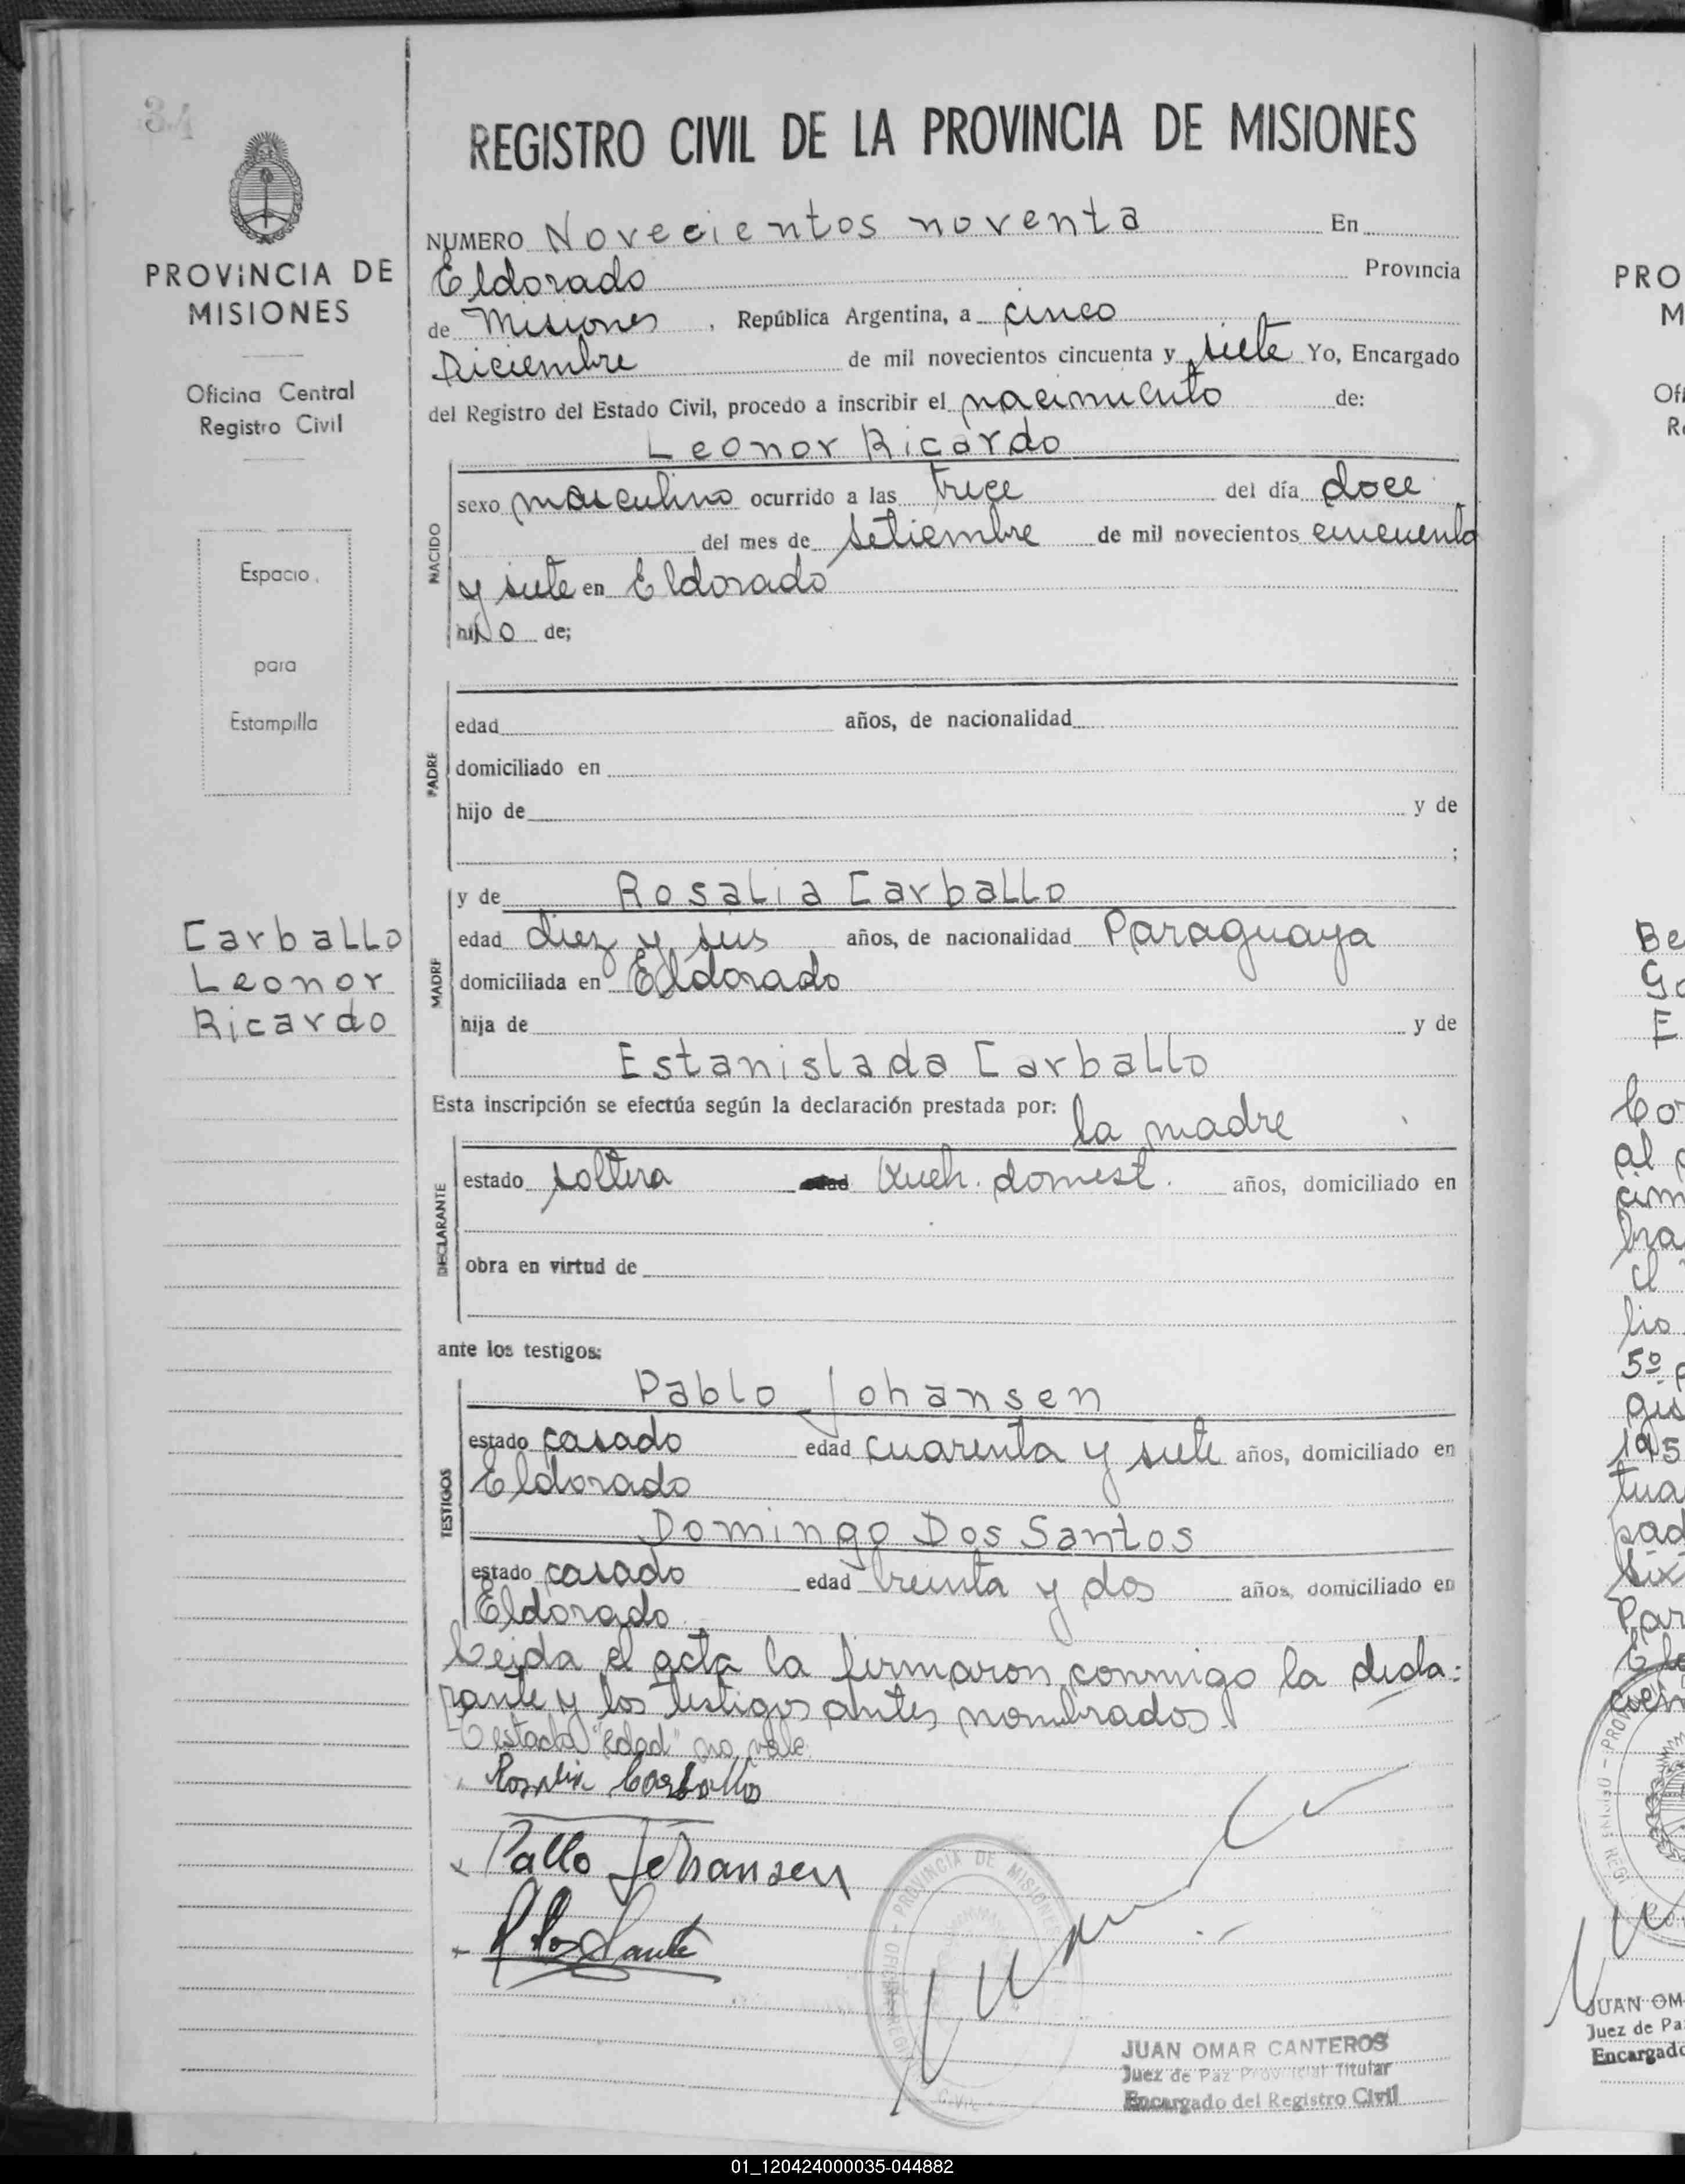 34
REGISTRO CIVIL DE LA PROVINCIA DE MISIONES
PROVINCIA DE
MISIONES
Oficina Central
Registro Civil
Espacio
para
Estampilla
Carballo
Leonor
Ricardo
NUMERO Novecientos noventa En
Eldorado Provincia
de Misiones, República Argentina, a cinco
Diciembre de mil novecientos cincuenta y siete Yo, Encargado
del Registro del Estado Civil, procedo a inscribir el nacimiento de:
Leonor Ricardo
NACIDO
sexo masculino ocurrido a las trece del día doce
del mes de Setiembre de mil novecientos cincuenta
y siete en Eldorado
hijo de;
PADRE
edad años, de nacionalidad
domiciliado en
hijo de y de
;
MADRE
y de Rosalia Carballo
edad diez y seis años, de nacionalidad Paraguaya
domiciliada en Eldorado
hija de y de
Estanislada Carballo
Esta inscripción se efectúa según la declaración prestada por:
la madre
DECLARANTE
estado soltera edad domest. años, domiciliado en
obra en virtud de
ante los testigos:
TESTIGOS
Pablo Johansen
estado casado edad cuarenta y siete años, domiciliado en
Eldorado
Domingo Dos Santos
estado casado edad treinta y dos años, domiciliado en
Eldorado
Leida el acta la firmaron conmigo la decla:
rante y los testigos antes nombrados.
Testada "edad" no vale.
Rosalia Carballo
Pablo Johansen
Dos Santos
PROVINCIA DE MISIONES
CIVIL
JUAN OMAR CANTEROS
Juez de Paz Provincial Titular
Encargado del Registro Civil
PRO
M
Ofi
Re
Be
Ga
E
al
5º
195
JUAN OM
Juez de Pa
Encargado
01_120424000035-044882